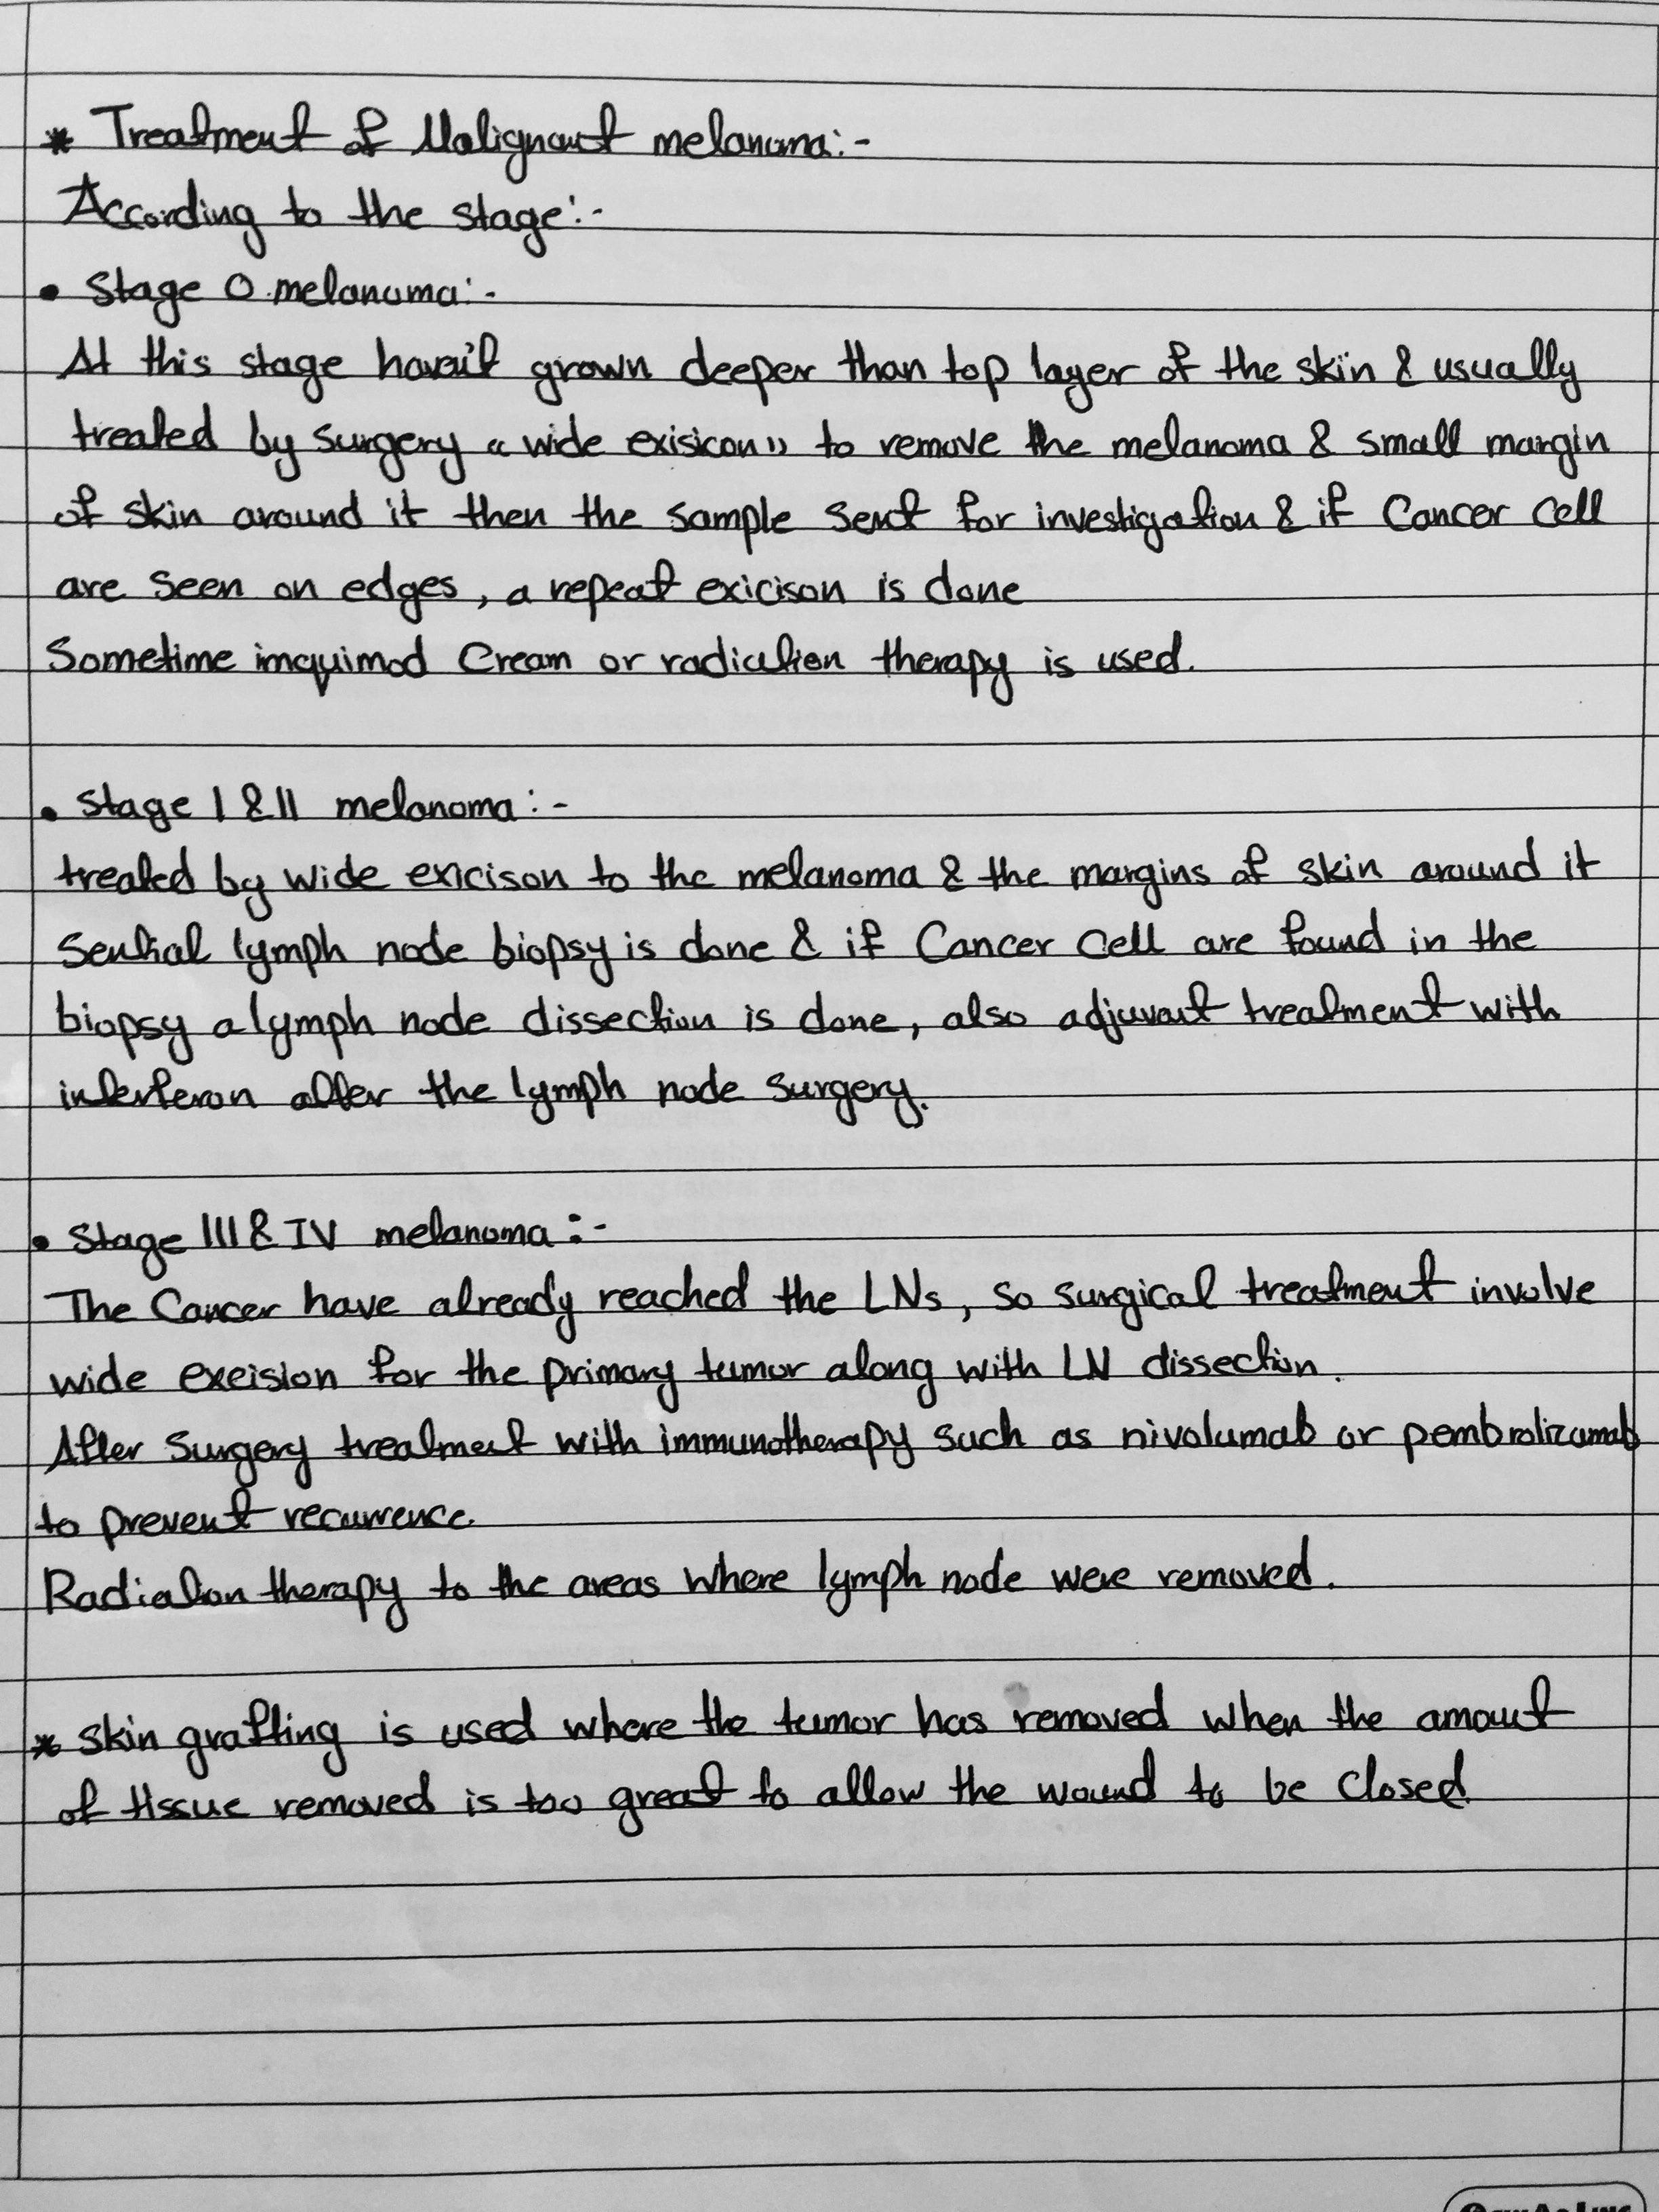 * Treatment of Malignant melanoma:-
According to the stage:-
• Stage 0 melanoma:-
At this stage havn't grown deeper than top layer of the skin & usually
treated by surgery "wide exisicon" to remove the melanoma & small margin
of skin around it then the sample sent for investigation & if Cancer cell
are seen on edges, a repeat exicison is done
Sometime imquimod cream or radiation therapy is used.
• Stage I & II melanoma:-
treated by wide exicison to the melanoma & the margins of skin around it
Sential lymph node biopsy is done & if Cancer cell are found in the
biopsy a lymph node dissection is done, also adjuvant treatment with
interferon after the lymph node surgery.
• Stage III & IV melanoma:-
The Cancer have already reached the LNs, so surgical treatment involve
wide excision for the primary tumor along with LN dissection.
After surgery treatment with immunotherapy such as nivolumab or pembrolizumab
to prevent recurrence.
Radiation therapy to the areas where lymph node were removed.
* skin grafting is used where the tumor has removed when the amount
of tissue removed is too great to allow the wound to be closed.